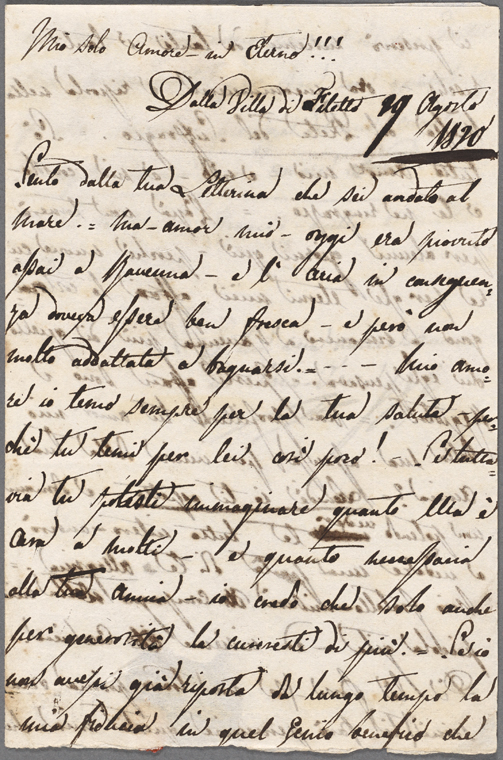 Mio solo Amore - in Eterno!!!
Dalla Villa di Filetto 19 Agosto
1820
Sento dalla tua Letterina che sei andato al
mare. = ma - amor mio - oggi era piovuto
assai a Ravenna - e l'aria in conseguen=
za doveva essere ben fresca - e però non
molto addattata a bagnarsi. - - - - Mio amo=
re io temo sempre per la tua salute - per=
chè tu temi per lei così poco! - Se tutta=
via tu potesti immaginare quanto Ella è
cara a molti - e quanto necessaria
alla tua Amica - io credo che solo anche
per generosità la cureresti di più. - Se io
non avessi già riposta da lungo tempo la
mia fiducia in quel Genio benefico che